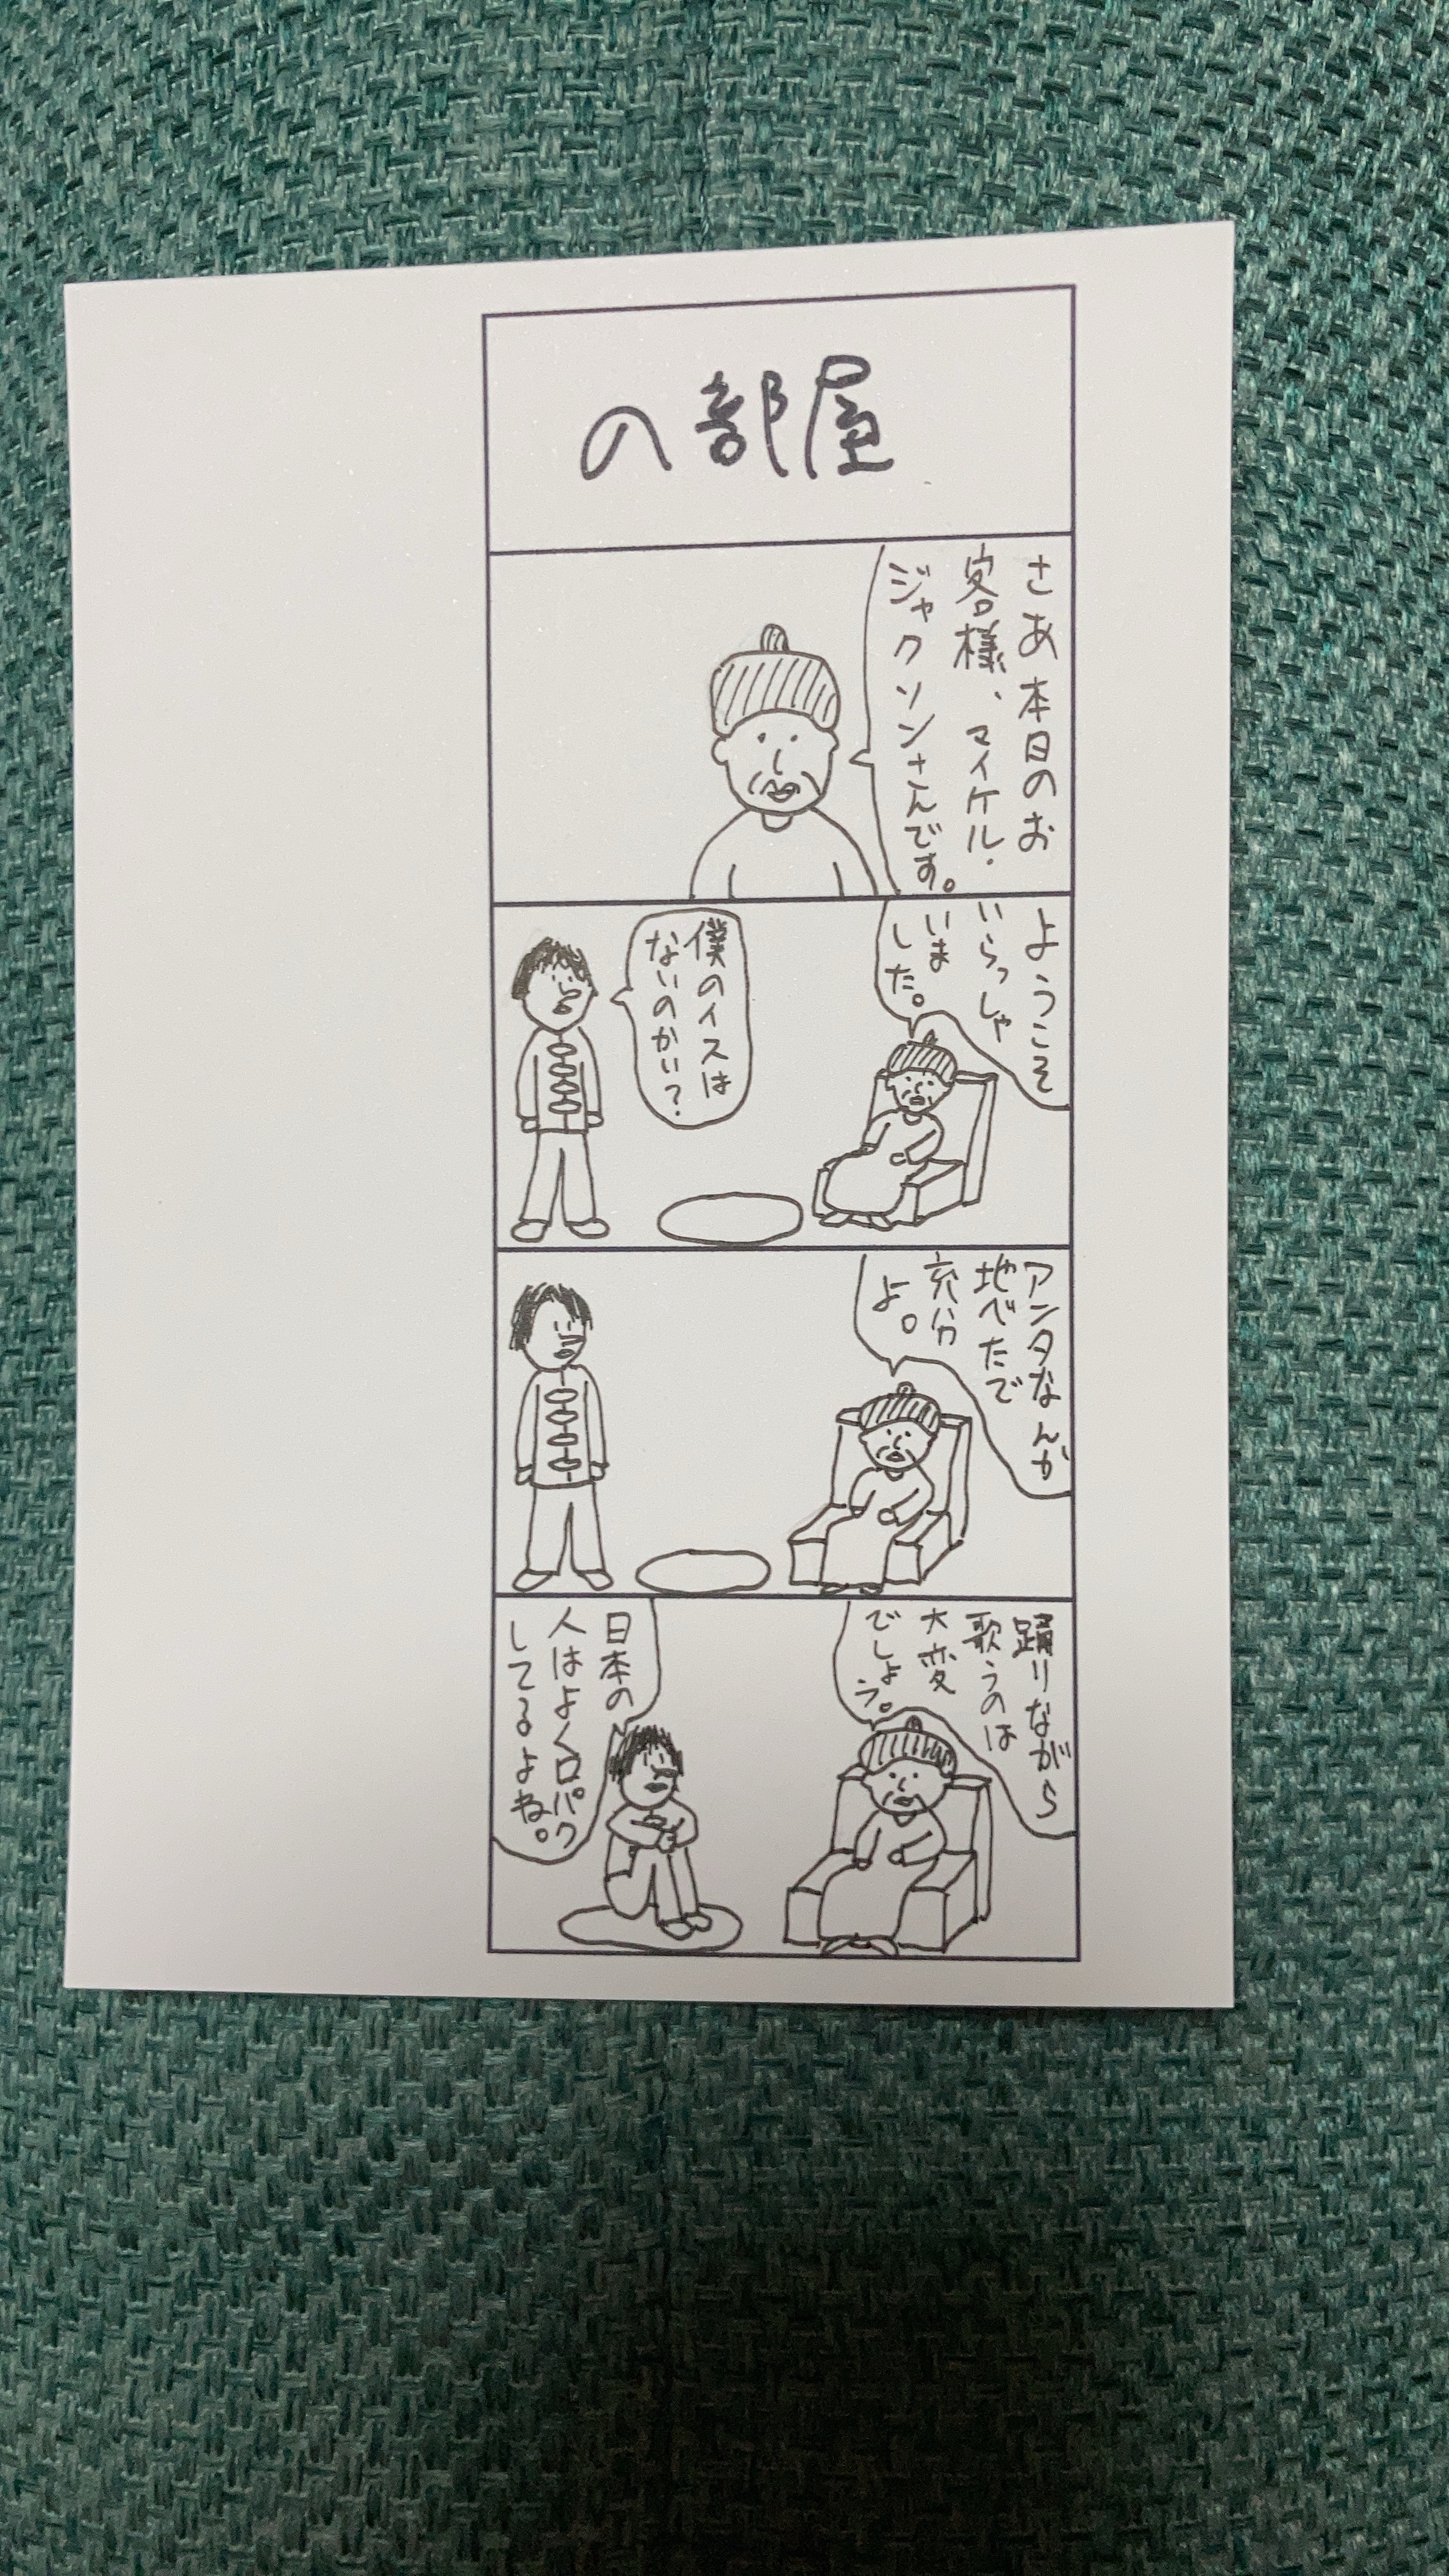 の部屋
さあ本日のお
客様、マイケル・
ジャクソンさんです。
ようこそ
いらっしゃ
いま
した。
僕のイスは
ないのかい?
アンタなんか
地べたで
充分
よ。
踊りながら
歌うのは
大変
でしょう。
日本の
人はよく口パク
してるよね。